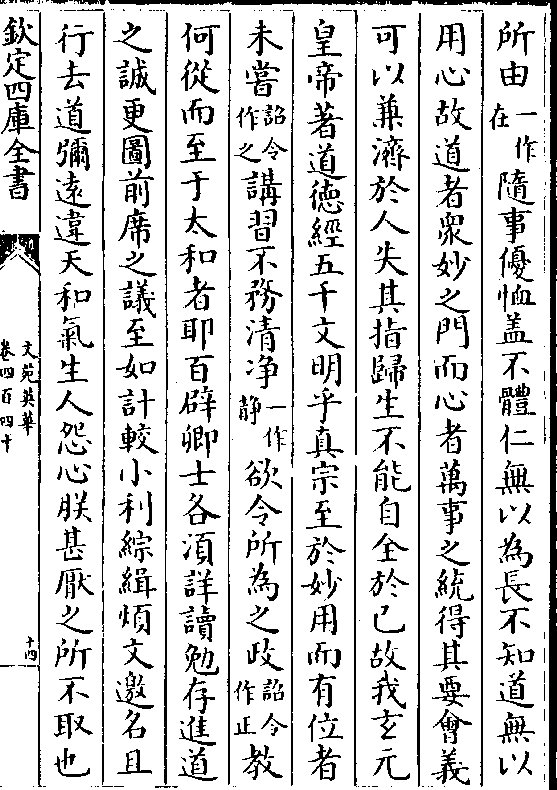 所由一作在隨事優恤盖不體仁無以為長不知道無以
用心故道者衆妙之門而心者萬事之統得其要會義
可以兼濟於人失其指歸生不能自全於已故我玄元
皇帝著道德經五千文明乎真宗至於妙用而有位者
未嘗詔令作之講習不務清净一作静欲令所為之政詔令作正教
何從而至于太和者耶百辟卿士各湏詳讀勉存進道
之誠更圖前席之議至如計較小利綜緝煩文邀名且
行去道彌逺違天和氣生人怨心朕甚厭之所不取也
欽定四庫全書
文苑英華
卷四百四十
十四